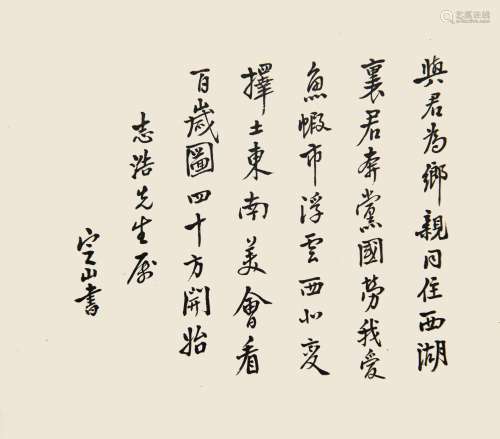 與君為鄉親同住西湖
裏君奔黨國勞我愛
魚蝦市浮雲西北變
擇土東南美會看
百歲圖四十方開始
志浩先生屬
定山書